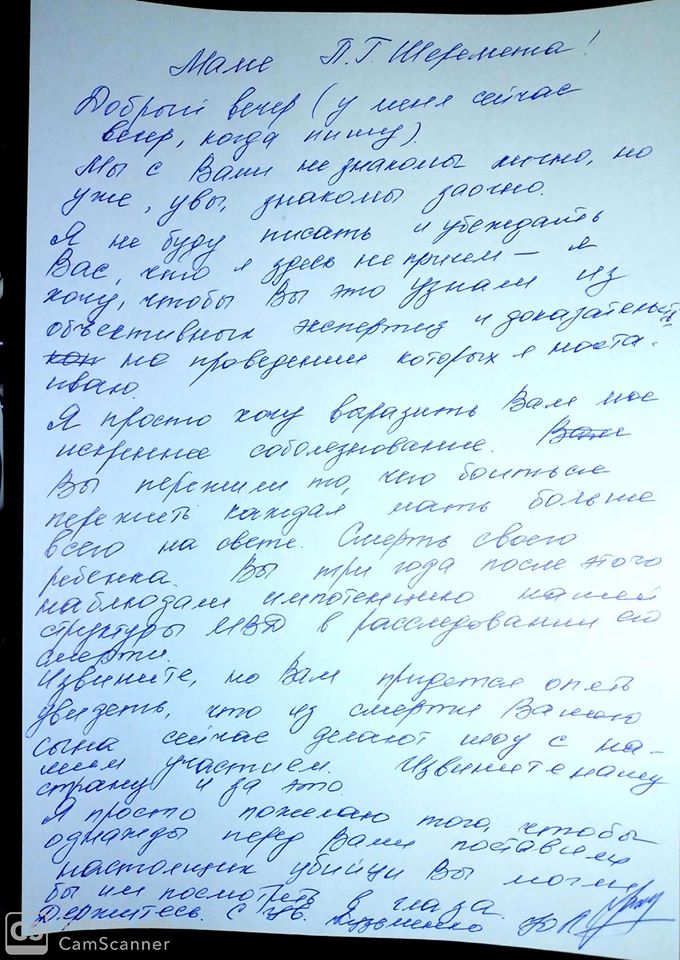 Маме П.Г. Шеремета!
Добрый вечер (у меня сейчас
вечер, когда пишу).
Мы с Вами не знакомы лично, но
уже, увы, знакомы заочно.
Я не буду писать и убеждать
Вас, что я здесь не при чем – я
хочу, чтобы Вы это узнали из
объективных экспертиз и доказательств,
на проведении которых я наста-
иваю.
Я просто хочу выразить Вам мое
искреннее соболезнование.
Вы пережили то, чего боиться
пережить каждая мать больше
всего на свете. Смерть своего
ребенка. Вы три года после этого
наблюдали импотенцию нашей
структуры МВД в расследовании его
смерти.
Извините, но Вам придется опять
увидеть, что из смерти Вашего
сына сейчас делают шоу с на-
шим участием. Извините нашу
страну и за это.
Я просто пожелаю того, чтобы
однажды перед Вами поставили
настоящих убийц и Вы могли
бы им посмотреть в глаза.
Держитесь. С ув. Кузьменко Ю.
CS CamScanner